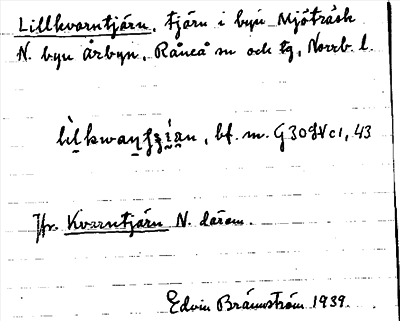 Lillkvarntjärn, tjärn i byn Mjöträsk
N. byn Årbyn, Råneå sn och tg, Norrb. l.
bf. m. G30 43
Jfr. Kvarntjärn N. därom.
Edvin Brännström 1939.